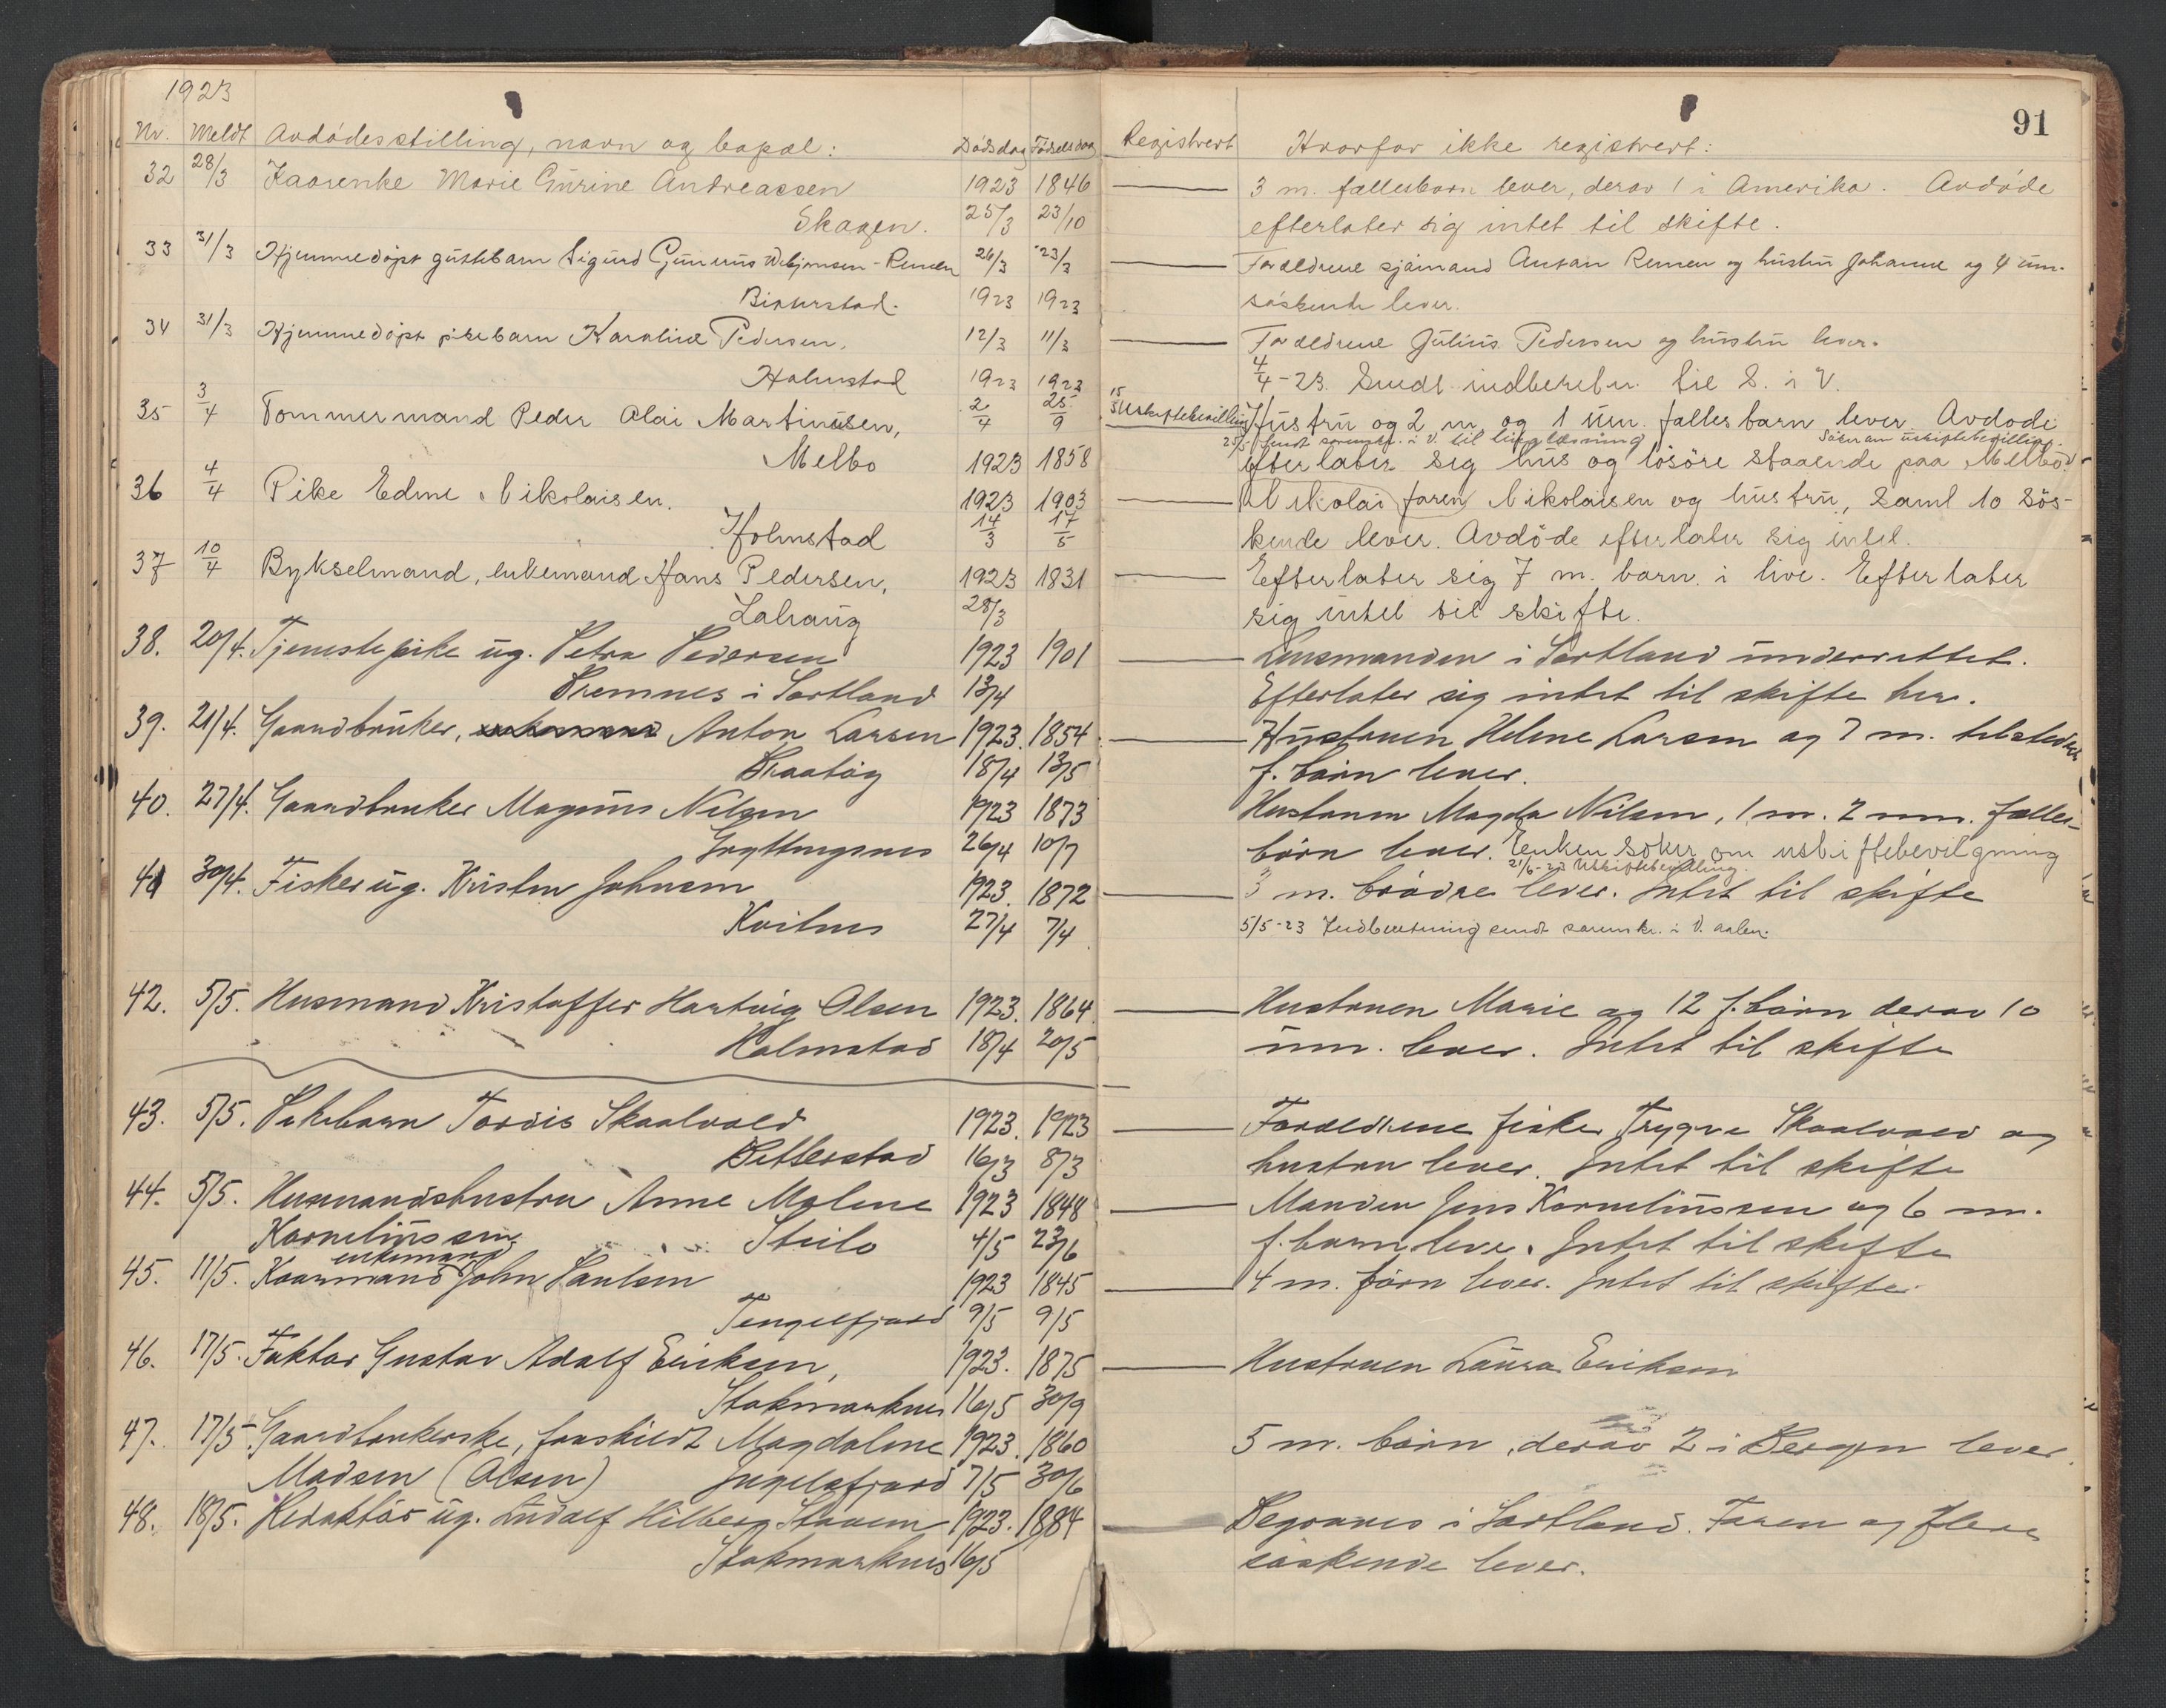 1923
91
Nr. Meldt Avdødes stilling, navn og bopæl: Dødsdag Fødselsdag Registrert Hvorfor ikke registrert:
32 28/3 Kaarenke Marie Gurine Andreassen 1923 1846 3 m. fællesbarn lever, derav 1 i Amerika. Avdøde
Skagen. 25/3 23/10 efterlater sig intet til skifte.
33 31/3 Hjemmedøpt guttebarn Sigurd Gunerius 26/3 23/3 Forældrene sjømand Anton Remen og hustru Johanne og 4 um.
1923 1923 søskende lever.
34 31/3 Hjemmedøpt pikebarn Karoline Pedersen, 12/3 11/3 Forældrene Julius Pedersen og hustru lever.
Holmstad 1923 1923 4/4-23. Sendt indberetn. til S. i V.
35 3/4 Tømmermand Peder Olai Martinusen, 2/4 25/9 Uskiftebevilling Hustru og 2 m. og 1 um. fælles barn lever. Avdøde
sendt sorenskr. i V. til tinglæsning Søker om uskiftebevilling.
Melbo 1923 1858 efterlater sig hus og løsøre staaende paa Melbo.
36 4/4 Pike Edine Nikolaisen. 1923 1903 Nikolai (faren) Nikolaisen og hustru, samt 10 søs-
Holmstad 14/3 17/5 kende lever. Avdøde efterlater sig intet.
37 10/4 Bykselmand, enkemand Hans Pedersen, 1923 1831 Efterlater sig 7 m. barn i live. Efterlater
Lahaug 28/3 sig intet til skifte.
38. 20/4. Tjenestepike ug. Petra Pedersen 1923 1901 Lensmanden i Sortland underrettet.
Bremnes i Sortland 13/4 Efterlater sig intet til skifte her.
39. 21/4. Gaardbruker, Anton Larsen 1923. 1854 Hustruen Helene Larsen og 7 m. tilstede
18/4 13/5 f. børn lever.
40. 27/4. Gaardbruker Magnus Nilsen 1923 1873 Hustruen Magda Nilsen, 1 m. 2 um. fælles-
Gryttingsnes 26/4 10/7 børn lever. Enken søker om uskiftebevilgning
21/6-23 Uskiftebevilling.
41 30/4. Fisker ug. Kristen Johnsen 1923. 1872 3 m. brødre lever. Intet til skifte
Kvitnes 27/4 7/4 5/5-23 Indberetning sendt sorenskr. i V.aalen.
42. 5/5. Husmand Kristoffer Hartvig Olsen 1923. 1864. Hustruen Marie og 12 f. børn derav 10
Holmstad 18/4 20/5 um. lever. Intet til skifte
43. 5/5. Pikebarn Tordis Skaalvold 1923. 1923 Forældrene fisker Trygve Skaalvold og
Bitterstad 16/3 8/3 hustru lever. Intet til skifte
44. 5/5. Husmandshustru Anne Malene 1923 1848 Manden Jens Kornelinssen og 6 m.
Kornelinssen Steilo 4/5 23/6 f. barn leve. Intet til skifte
enkemand
45. 11/5. Kaarmand John Paulsen 1923 1845 4 m. børn lever. Intet til skifte.
Tengelfjord 9/5 9/5
46. 17/5. Faktor Gustav Adolf Eriksen, 1923. 1875 Hustruen Laura Eriksen
Stokmarknes 16/5 30/9
47. 17/5 Gaardbrukerske, fraskildt Magdalene 1923. 1860 5 m. børn, derav 2 i Bergen lever.
Madsen (Olsen) Ingelsfjord 7/5 30/6
48. 18/5. Redaktør ug. Ludolf Hilberg 1923. 1884 Begraves i Sortland. Faren og flere
Stokmarknes 16/5 søskende lever.